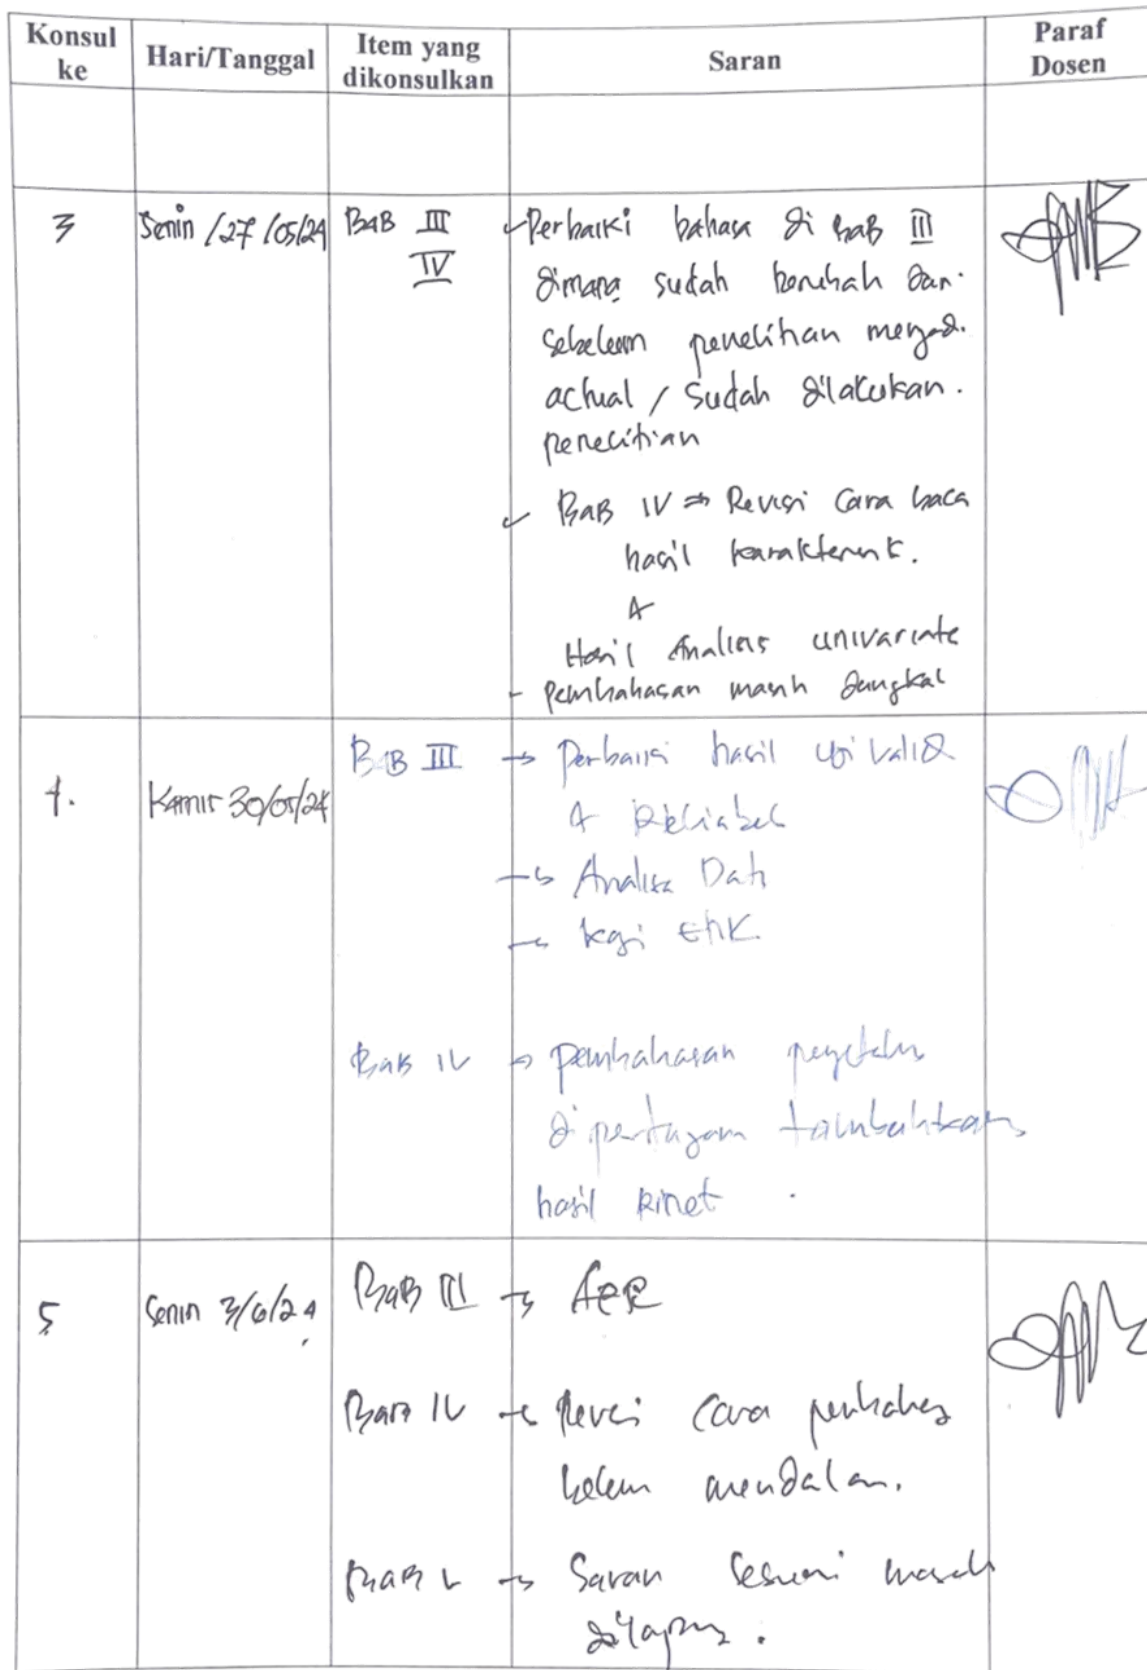 Konsul ke
Hari/Tanggal
Item yang dikonsulkan
Saran
Paraf Dosen
3
Senin /27/05/24
BAB III
IV
Perbaiki bahasa di BAB III
dimana sudah berubah dari
sebelum penelitian menjadi
actual / sudah dilakukan.
penelitian
BAB IV ⇒ Revisi Cara baca
hasil
&
Hasil Analisis univariate
- Pembahasan masih dangkal
4.
Kamis 30/05/24
BAB III → Perbaiki hasil uji valid
& Reliabel
→ Analisa Data
→ Etik
BAB IV → pembahasan
di tambahkan
hasil
5
Senin 3/6/24
BAB III → Acc
BAB IV → Revisi Cara
belum mendalam.
BAB V → Saran sesuai